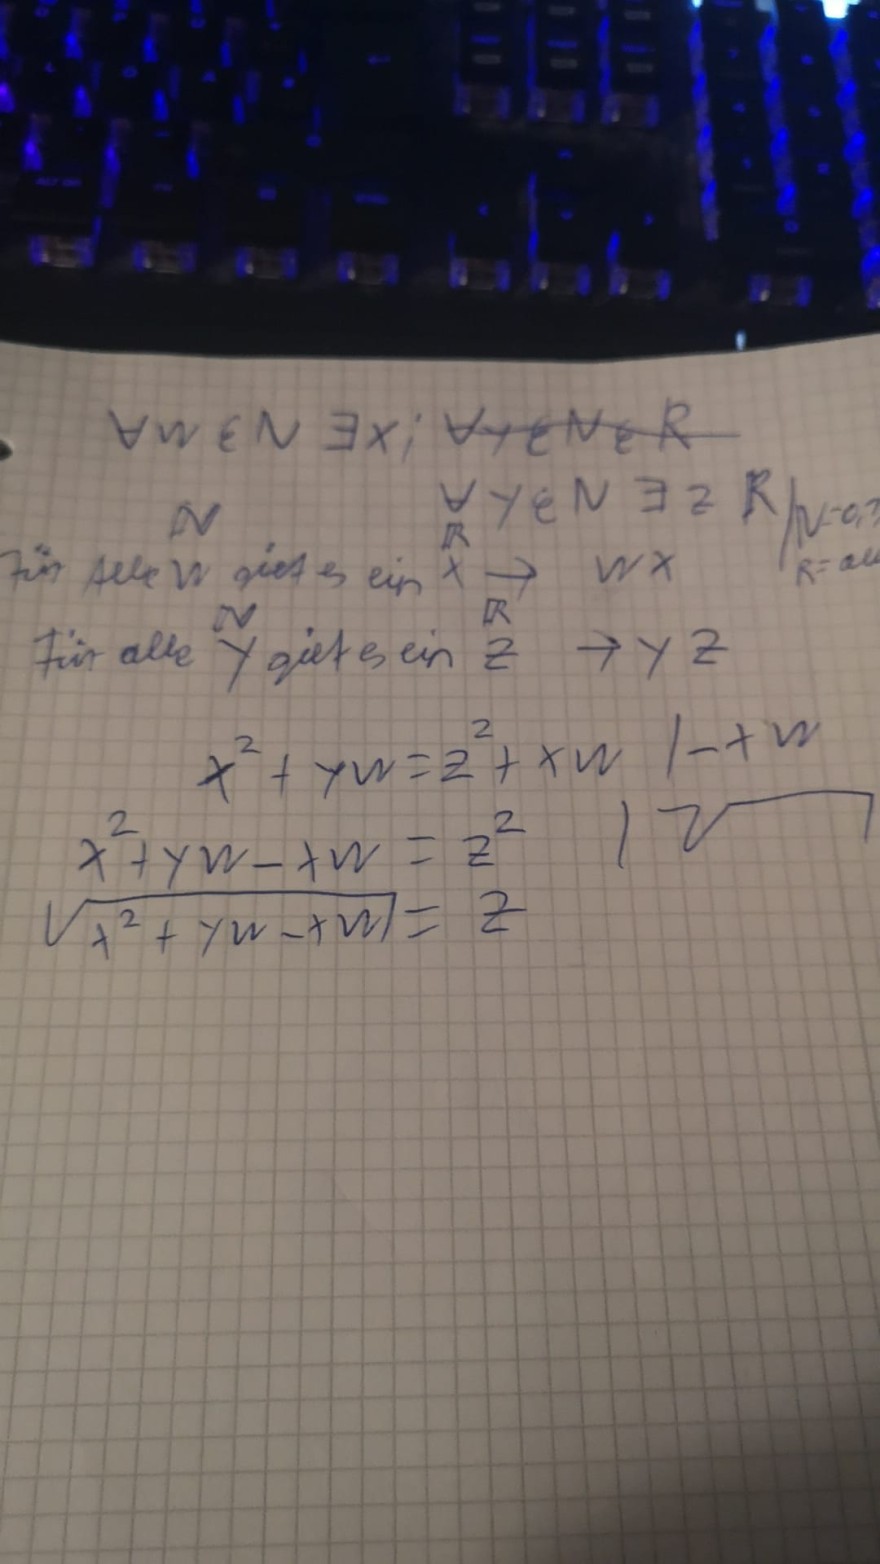 ∀w∈N ∃x; ∀y∈N∈R
∀y∈N ∃z R/N=0,
N R R=
Für Alle w giebt es ein x → wx
N R
Für alle y giebt es ein z → yz
x² + yw = z² + xw |-xw
x² + yw - xw = z² | √
√x² + yw - xw = z